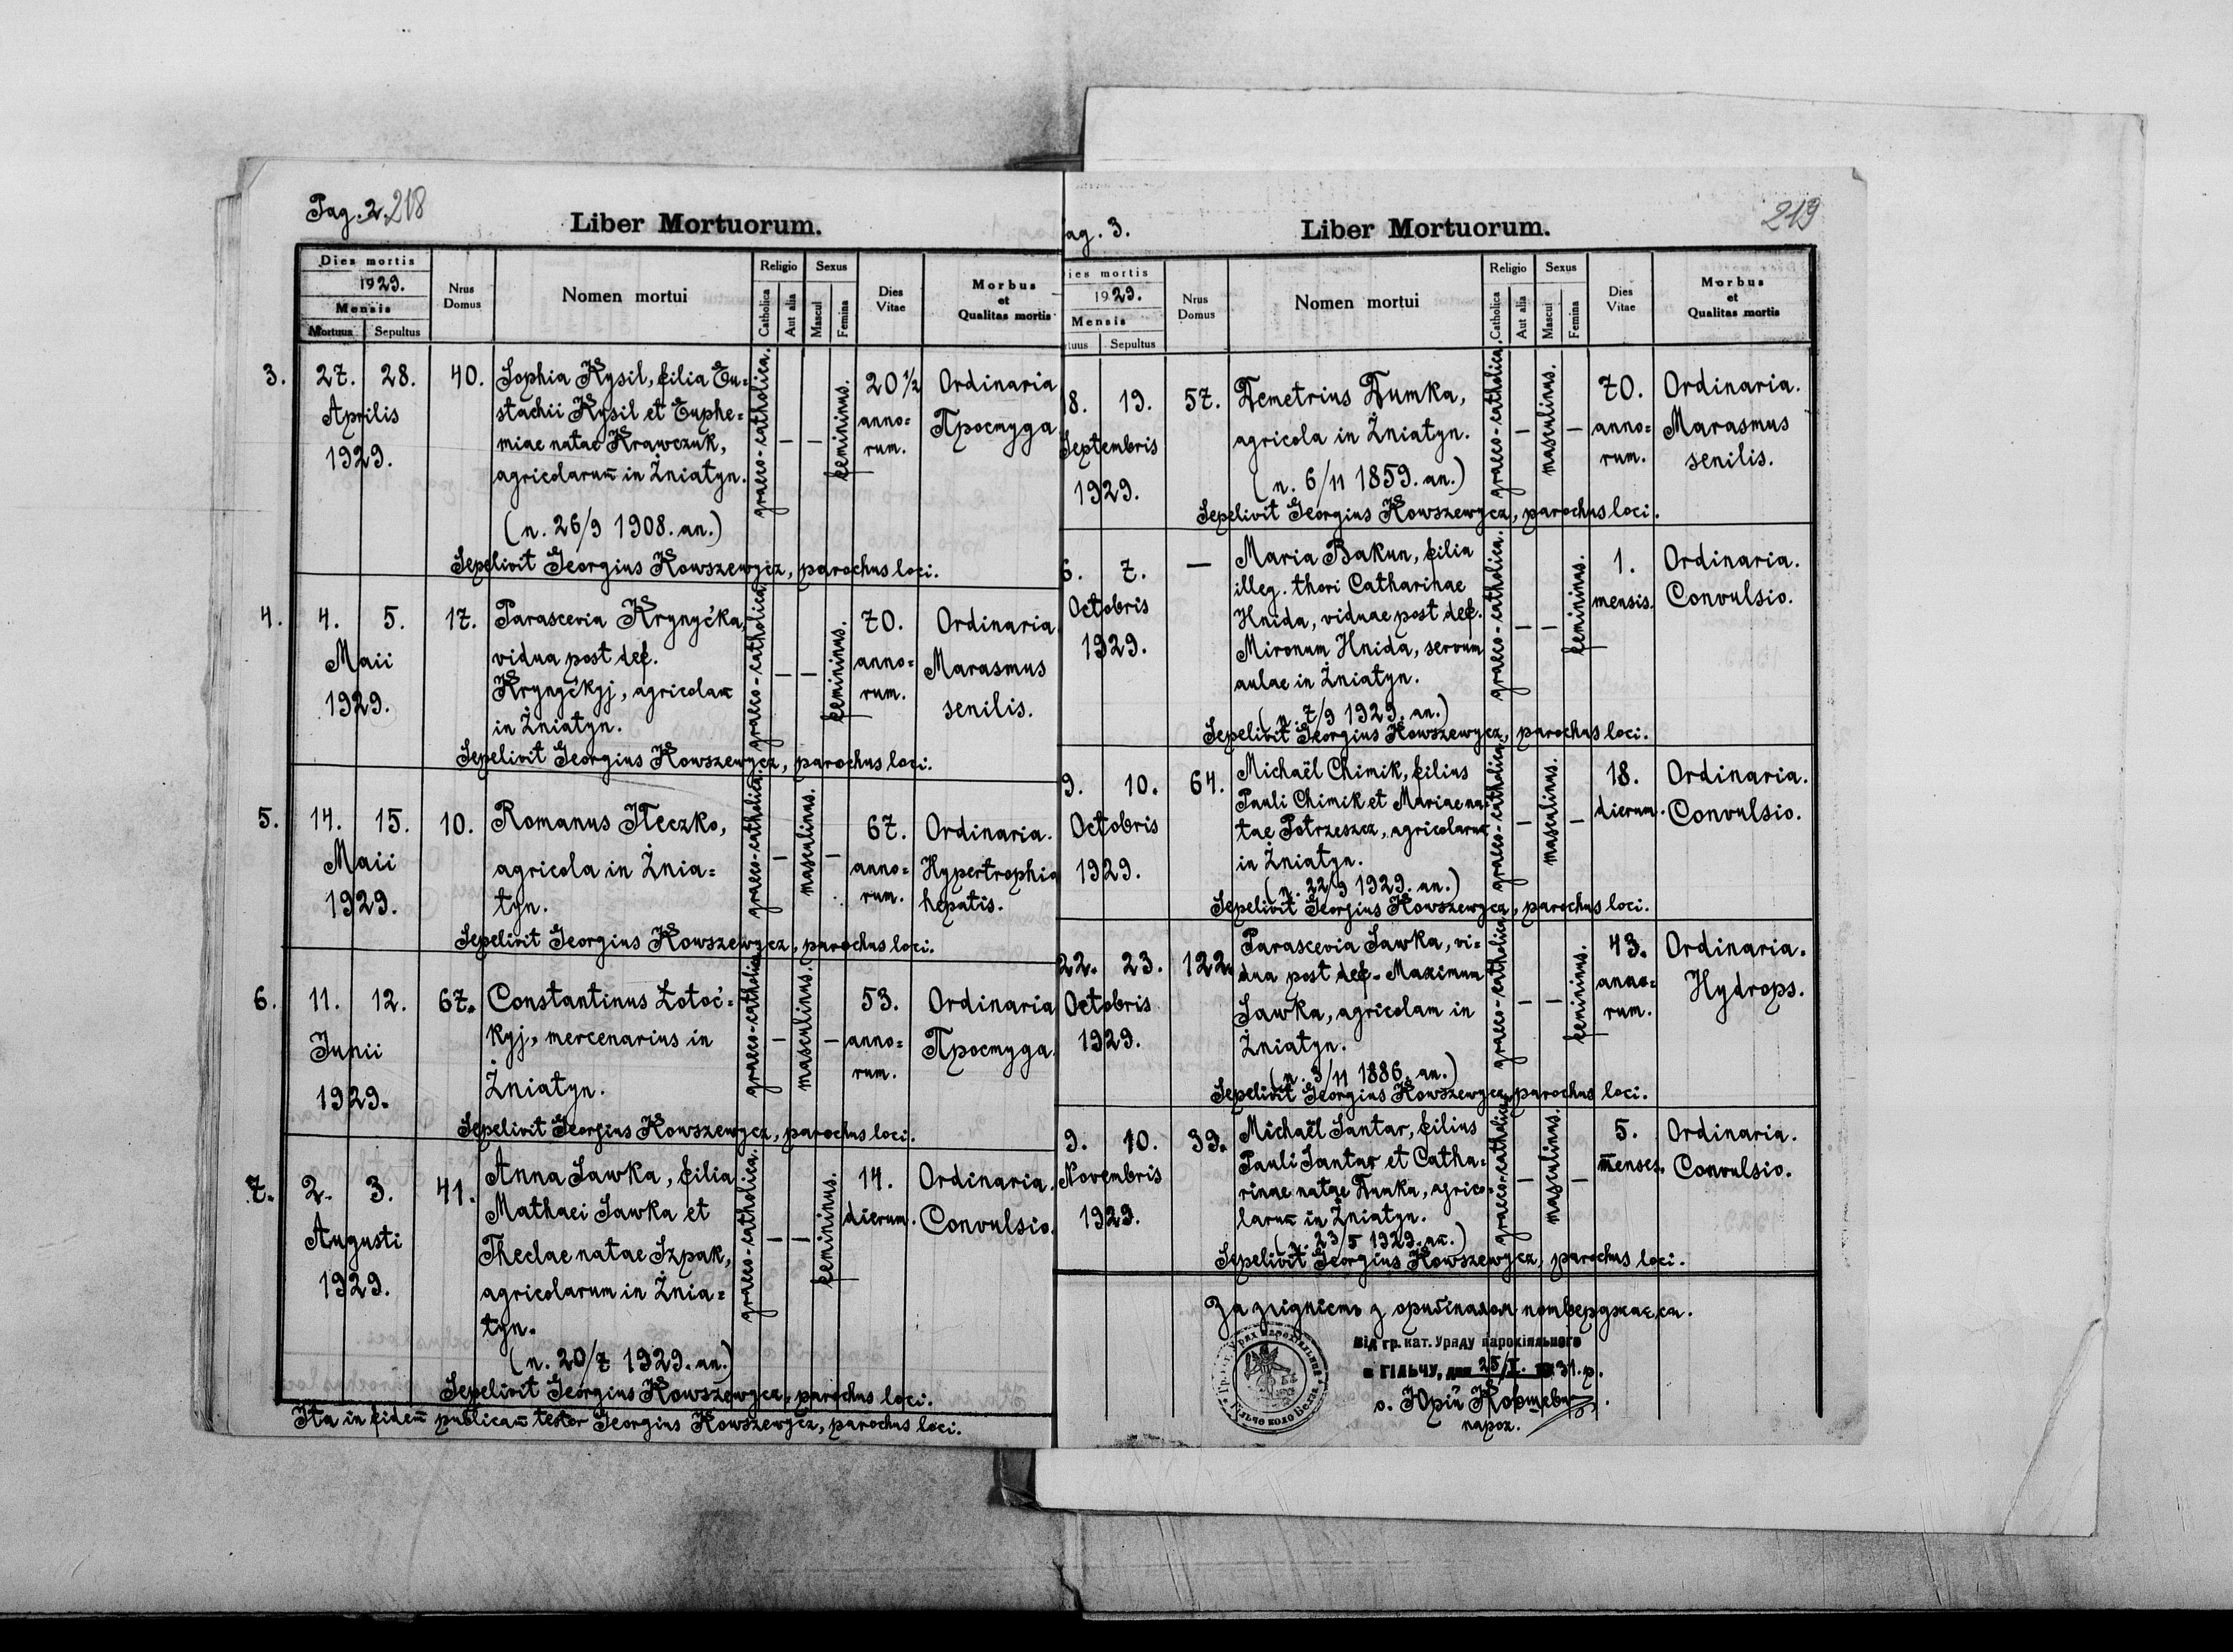 Pag. 2. 218
Liber Mortuorum.
Dies mortis
1929.
Mensis
Mortuus Sepultus
Nrus Domus
Nomen mortui
Religio
Catholica
Aut alia
Sexus
Mascul
Femina
Dies Vitae
Morbus
et
Qualitas mortis
3. 27. 28. 40. Sophia Kysil, filia Eu= 20 1/2 Ordinaria
Aprilis stachii Kysil et Euphe= anno= Простуда
1929. miae natae Krawczuk, rum.
agricolarum in Żniatyn.
graeco-catholica. — — femininus.
(n. 26/9 1908. an.)
Sepelivit Georgius Kowszewycz, parochus loci.
4. 4. 5. 17. Parascevia Krynyćka, 70. Ordinaria
Maii vidua post def. anno= Marasmus
1929. Krynyćkyj, agricolam rum. senilis.
in Żniatyn.
graeco-catholica — — femininus.
Sepelivit Georgius Kowszewycz, parochus loci.
5. 14. 15. 10. Romanus Heczko, 67. Ordinaria.
Maii agricola in Żnia= anno= Hypertrophia
1929. tyn. rum. hepatis.
graeco-catholica. — masculinus. —
Sepelivit Georgius Kowszewycz, parochus loci.
6. 11. 12. 67. Constantinus Łotoć= 53. Ordinaria
Junii kyj, mercenarius in anno= Простуда.
1929. Żniatyn. rum.
graeco-catholica — masculinus. —
Sepelivit Georgius Kowszewycz, parochus loci.
7. 2. 3. 41. Anna Sawka, filia 14. Ordinaria.
Augusti Mathaei Sawka et dierum. Convulsio.
1929. Theclae natae Szpak,
agricolarum in Żnia=
tyn.
graeco-catholica. — — femininus.
(n. 20/7 1929. an.)
Sepelivit Georgius Kowszewycz, parochus loci.
Ita in fidem publicam testor Georgius Kowszewycz, parochus loci.
ag. 3.
Liber Mortuorum.
219
ies mortis
1929.
Mensis
tuus Sepultus
Nrus Domus
Nomen mortui
Religio
Catholica
Aut alia
Sexus
Mascul
Femina
Dies Vitae
Morbus
et
Qualitas mortis
18. 19. 57. Demetrius Dumka, 70. Ordinaria.
Septembris agricola in Żniatyn. anno= Marasmus
1929. (n. 6/11 1859. an.) rum. senilis.
graeco-catholica. — masculinus. —
Sepelivit Georgius Kowszewycz, parochus loci.
6. 7. — Maria Bakun, filia 1. Ordinaria.
Octobris illeg. thori Catharinae mensis. Convulsio.
1929. Hnida, viduae post def.
Mironum Hnida, servum
aulae in Żniatyn.
graeco-catholica. — — femininus.
(n. 7/9 1929. an.)
Sepelivit Georgius Kowszewycz, parochus loci.
9. 10. 64. Michaël Chimik, filius 18. Ordinaria.
Octobris Pauli Chimik et Mariae na= dierum. Convulsio.
1929. tae Potrzeszcz, agricolarum
in Żniatyn.
graeco-catholica — masculinus. —
(n. 22/9 1929. an.)
Sepelivit Georgius Kowszewycz, parochus loci.
22. 23. 122. Parascevia Sawka, vi= 43. Ordinaria.
Octobris dua post def. Maximum anno= Hydrops.
1929. Sawka, agricolam in rum.
Żniatyn.
graeco-catholica — — femininus.
(n. 3/11 1886. an.)
Sepelivit Georgius Kowszewycz, parochus loci.
9. 10. 39. Michaël Santar, filius 5. Ordinaria.
Novembris Pauli Santar et Catha= menses. Convulsio.
1929. rinae natae Dumka, agrico=
larum in Żniatyn.
graeco-catholica — masculinus. —
(n. 23/5 1929. an.)
Sepelivit Georgius Kowszewycz, parochus loci.
За згідність з оригіналом потверджаєся.
від гр. кат. Уряду парохіяльного
в ГІЛЬЧУ, дня 25/I. 1931. р.
о. Юрій Ковшевич
парох.